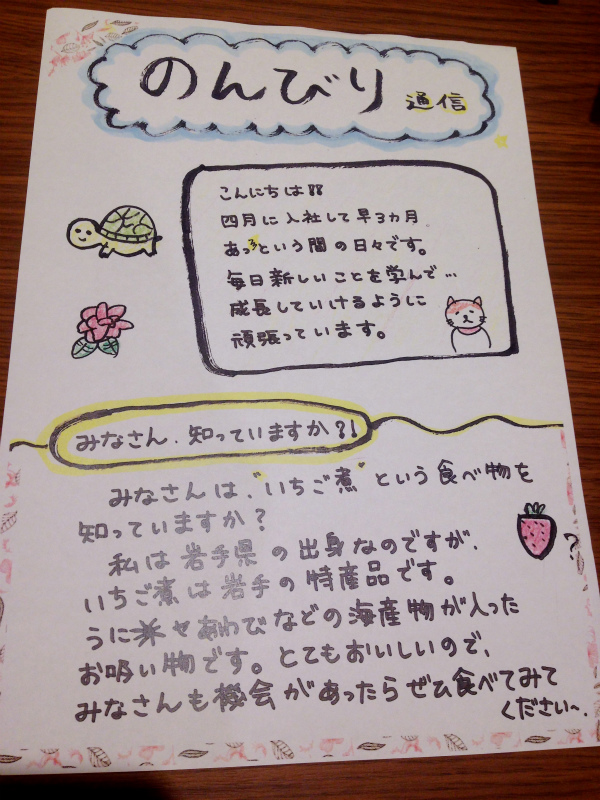 のんびり 通信
こんにちは!!
四月に入社して早3ヵ月
あっという間の日々です。
毎日新しいことを学んで…
成長していけるように
頑張っています。
みなさん、知っていますか?!
みなさんは、"いちご煮"という食べ物を
知っていますか?
私は岩手県の出身なのですが、
いちご煮は岩手の特産品です。
うにやあわびなどの海産物が入った
お吸い物です。とてもおいしいので、
みなさんも機会があったらぜひ食べてみて
ください〜。
?